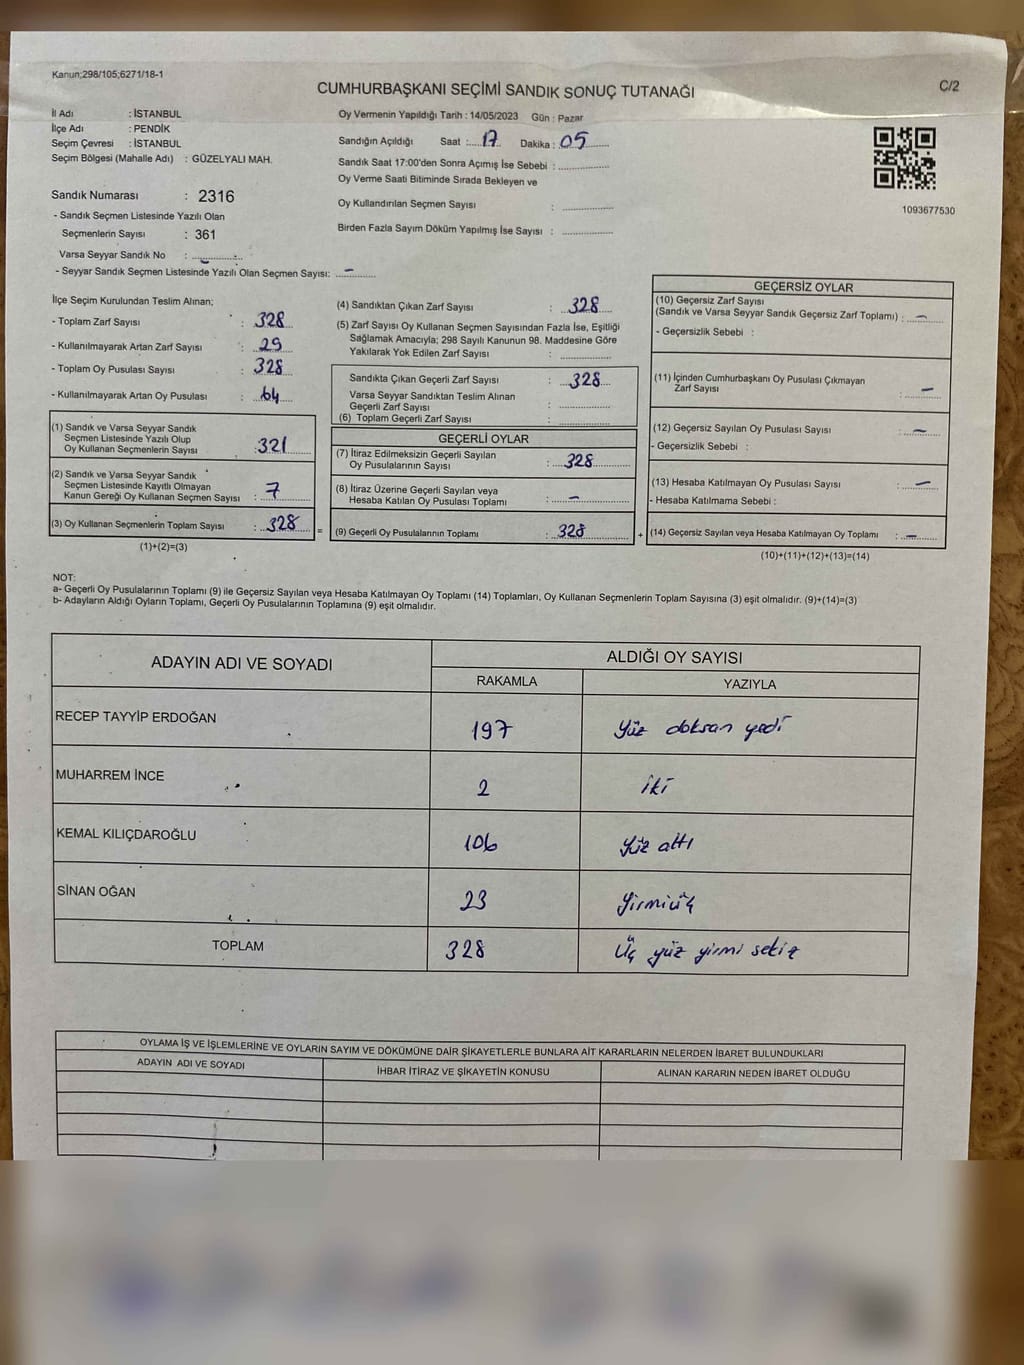 Kanun;298/105;6271/18-1
CUMHURBAŞKANI SEÇİMİ SANDIK SONUÇ TUTANAĞI
C/2
İl Adı : İSTANBUL
İlçe Adı : PENDİK
Seçim Çevresi : İSTANBUL
Seçim Bölgesi (Mahalle Adı) : GÜZELYALI MAH.
Sandık Numarası : 2316
- Sandık Seçmen Listesinde Yazılı Olan
Seçmenlerin Sayısı : 361
Varsa Seyyar Sandık No : -
- Seyyar Sandık Seçmen Listesinde Yazılı Olan Seçmen Sayısı: -
Oy Vermenin Yapıldığı Tarih : 14/05/2023 Gün : Pazar
Sandığın Açıldığı Saat : 17 Dakika : 05
Sandık Saat 17:00'den Sonra Açımış İse Sebebi :
Oy Verme Saati Bitiminde Sırada Bekleyen ve
Oy Kullandırılan Seçmen Sayısı :
Birden Fazla Sayım Döküm Yapılmış İse Sayısı :
1093677530
İlçe Seçim Kurulundan Teslim Alınan;
- Toplam Zarf Sayısı : 328
- Kullanılmayarak Artan Zarf Sayısı : 29
- Toplam Oy Pusulası Sayısı : 328
- Kullanılmayarak Artan Oy Pusulası : 64
(1) Sandık ve Varsa Seyyar Sandık
Seçmen Listesinde Yazılı Olup
Oy Kullanan Seçmenlerin Sayısı : 321
(2) Sandık ve Varsa Seyyar Sandık
Seçmen Listesinde Kayıtlı Olmayan
Kanun Gereği Oy Kullanan Seçmen Sayısı : 7
(3) Oy Kullanan Seçmenlerin Toplam Sayısı : 328 =
(1)+(2)=(3)
(4) Sandıktan Çıkan Zarf Sayısı : 328
(5) Zarf Sayısı Oy Kullanan Seçmen Sayısından Fazla İse, Eşitliği
Sağlamak Amacıyla; 298 Sayılı Kanunun 98. Maddesine Göre
Yakılarak Yok Edilen Zarf Sayısı :
Sandıkta Çıkan Geçerli Zarf Sayısı : 328
Varsa Seyyar Sandıktan Teslim Alınan
Geçerli Zarf Sayısı :
(6) Toplam Geçerli Zarf Sayısı :
GEÇERLİ OYLAR
(7) İtiraz Edilmeksizin Geçerli Sayılan
Oy Pusulalarının Sayısı : 328
(8) İtiraz Üzerine Geçerli Sayılan veya
Hesaba Katılan Oy Pusulası Toplamı : -
(9) Geçerli Oy Pusulalarının Toplamı : 328 +
GEÇERSİZ OYLAR
(10) Geçersiz Zarf Sayısı
(Sandık ve Varsa Seyyar Sandık Geçersiz Zarf Toplamı) : -
- Geçersizlik Sebebi :
(11) İçinden Cumhurbaşkanı Oy Pusulası Çıkmayan
Zarf Sayısı : -
(12) Geçersiz Sayılan Oy Pusulası Sayısı : -
- Geçersizlik Sebebi :
(13) Hesaba Katılmayan Oy Pusulası Sayısı : -
- Hesaba Katılmama Sebebi :
(14) Geçersiz Sayılan veya Hesaba Katılmayan Oy Toplamı : -
(10)+(11)+(12)+(13)=(14)
NOT:
a- Geçerli Oy Pusulalarının Toplamı (9) ile Geçersiz Sayılan veya Hesaba Katılmayan Oy Toplamı (14) Toplamları, Oy Kullanan Seçmenlerin Toplam Sayısına (3) eşit olmalıdır. (9)+(14)=(3)
b- Adayların Aldığı Oyların Toplamı, Geçerli Oy Pusulalarının Toplamına (9) eşit olmalıdır.
ADAYIN ADI VE SOYADI
ALDIĞI OY SAYISI
RAKAMLA YAZIYLA
RECEP TAYYİP ERDOĞAN 197 Yüz doksan yedi
MUHARREM İNCE 2 iki
KEMAL KILIÇDAROĞLU 106 Yüz altı
SİNAN OĞAN 23 Yirmiüç
TOPLAM 328 Üç yüz yirmi sekiz
OYLAMA İŞ VE İŞLEMLERİNE VE OYLARIN SAYIM VE DÖKÜMÜNE DAİR ŞİKAYETLERLE BUNLARA AİT KARARLARIN NELERDEN İBARET BULUNDUKLARI
ADAYIN ADI VE SOYADI İHBAR İTİRAZ VE ŞİKAYETİN KONUSU ALINAN KARARIN NEDEN İBARET OLDUĞU